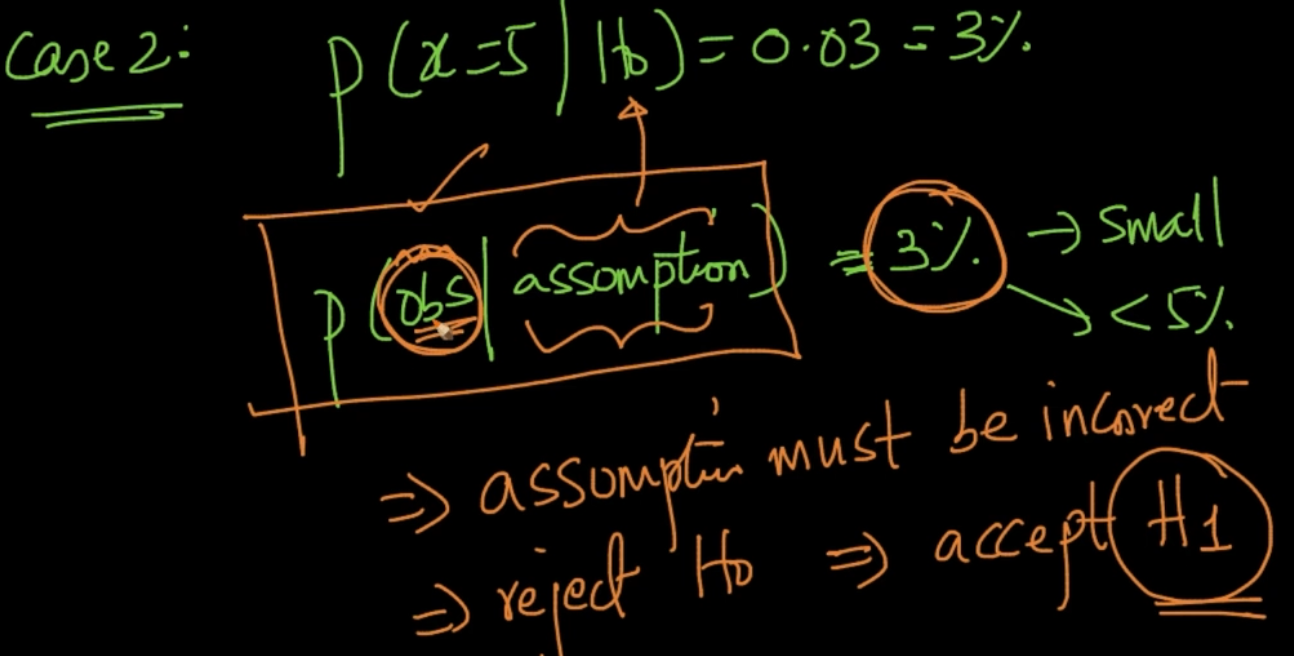 Case 2: P(x=5|H0) = 0.03 = 3%.
P(obs|assumption) = 3%. → Small
→ < 5%.
⇒ assumption must be incorrect
⇒ reject H0 ⇒ accept H1